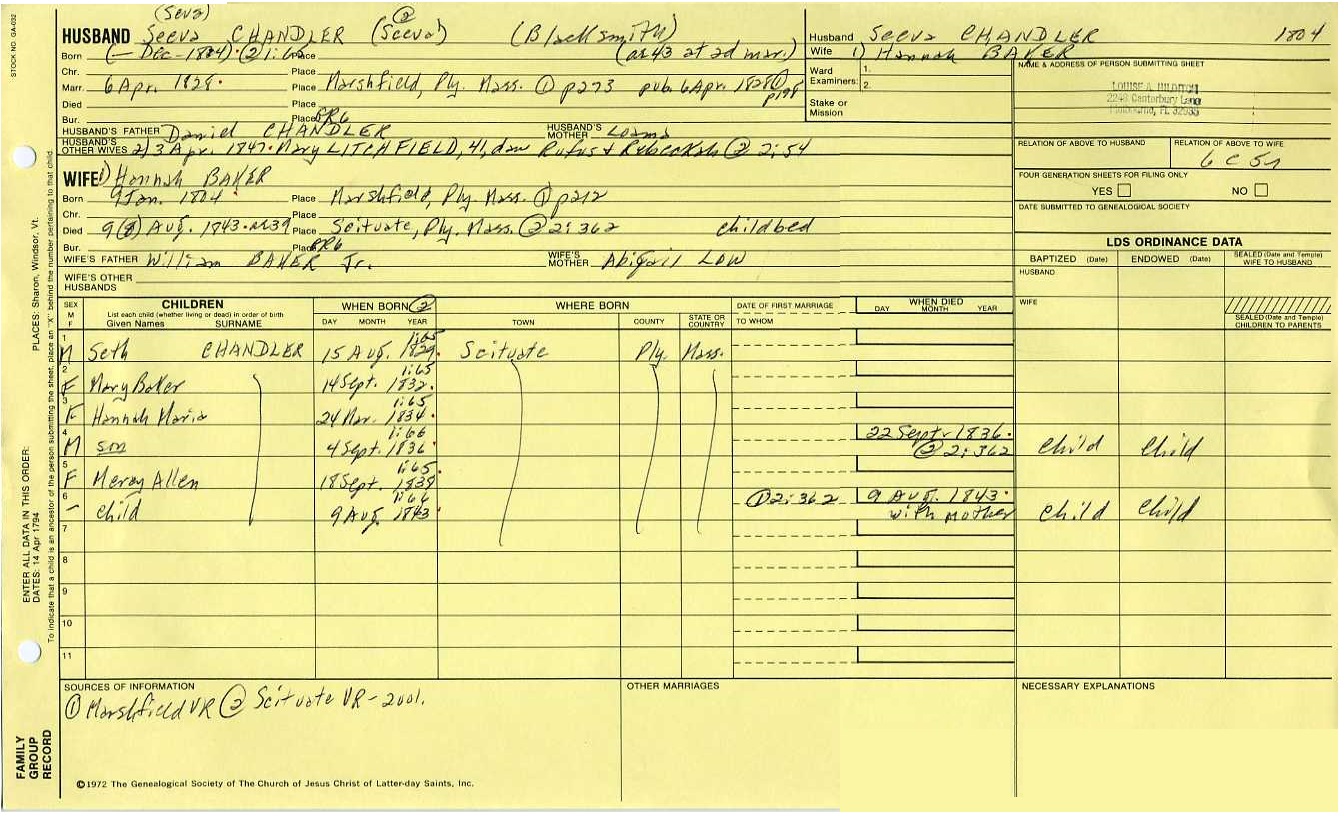 STOCK NO. GA-032
PLACES: Sharon, Windsor, Vt.
ENTER ALL DATA IN THIS ORDER:
DATES: 14 Apr 1794
To indicate that a child is an ancestor of the person submitting the sheet, place an "X" behind the number pertaining to that child.
FAMILY GROUP RECORD
(Seva) ②
HUSBAND Seeva CHANDLER (Seeva) (Blacksmith)
Born (— Dec - 1804) · ② 1:62 Place (ae 43 at 2d mar.)
Chr. Place
Marr. 6 Apr. 1828 · Place Marshfield, Ply. Mass. ① p273 pub. 6 Apr. 1828 ① p198
Died Place
Bur. Place PR6
HUSBAND'S FATHER Daniel CHANDLER HUSBAND'S MOTHER
HUSBAND'S OTHER WIVES 2) 3 Apr. 1847 · Mary LITCHFIELD, 41, daw Rufus & Rebeckah ② 2:54
WIFE 1) Hannah BAKER
Born 9 Jan. 1804 · Place Marshfield, Ply. Mass. ① p212
Chr. Place
Died 9 (8) Aug. 1843 · ae 39 Place Scituate, Ply. Mass. ② 2:362 childbed
Bur. Place PR6
WIFE'S FATHER William BAKER Jr. WIFE'S MOTHER Abigail LOW
WIFE'S OTHER HUSBANDS
Husband Seeva CHANDLER 1804
Wife 1) Hannah BAKER
Ward Examiners: 1. 2.
Stake or Mission
NAME & ADDRESS OF PERSON SUBMITTING SHEET
LOUISE A. HILDITCH
2249 Canterbury Lane
Melbourne, FL 32935
RELATION OF ABOVE TO HUSBAND RELATION OF ABOVE TO WIFE
6 C 5r
FOUR GENERATION SHEETS FOR FILING ONLY
YES NO
DATE SUBMITTED TO GENEALOGICAL SOCIETY
LDS ORDINANCE DATA
BAPTIZED (Date) ENDOWED (Date) SEALED (Date and Temple) WIFE TO HUSBAND
HUSBAND
WIFE
SEALED (Date and Temple) CHILDREN TO PARENTS
SEX M F CHILDREN WHEN BORN ② WHERE BORN DATE OF FIRST MARRIAGE WHEN DIED
List each child (whether living or dead) in order of birth
Given Names SURNAME DAY MONTH YEAR TOWN COUNTY STATE OR COUNTRY TO WHOM DAY MONTH YEAR
1 M Seth CHANDLER 15 Aug. 1829 · 1:65 Scituate Ply. Mass.
2 F Mary Baker 14 Sept. 1832 · 1:65
3 F Hannah Maria 24 Mar. 1834 · 1:65
4 M son 4 Sept. 1836 · 1:66 22 Sept. 1836 · ② 2:362 child child
5 F Mercy Allen 18 Sept. 1838 1:65
6 - child 9 Aug. 1843 · 1:66 ① 2:362 9 Aug. 1843 · with mother child child
7
8
9
10
11
SOURCES OF INFORMATION OTHER MARRIAGES NECESSARY EXPLANATIONS
① Marshfield VR ② Scituate VR - 2001.
©1972 The Genealogical Society of The Church of Jesus Christ of Latter-day Saints, Inc.